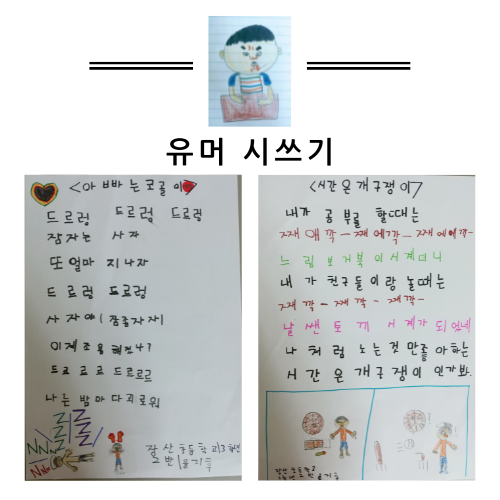 유머 시쓰기
<아빠는 코골이>
드르렁 드르렁 드르렁
잠자는 사자
또 얼마 지나자
드르렁 드르렁
사자야! 좀 자자
이제 조용해졌나?
드르르르 드르르르
나는 밤마다 괴로워
<시간은 개구쟁이>
내가 공부를 할때는
째애깍-째에깍-째에에깍-
느림보거북이시계더니
내가 친구들이랑 놀때는
째깍-째깍-째깍-
날쌘토끼 시계가 되었네
나처럼 노는것만 좋아하는
시간은 개구쟁이 인가봐.